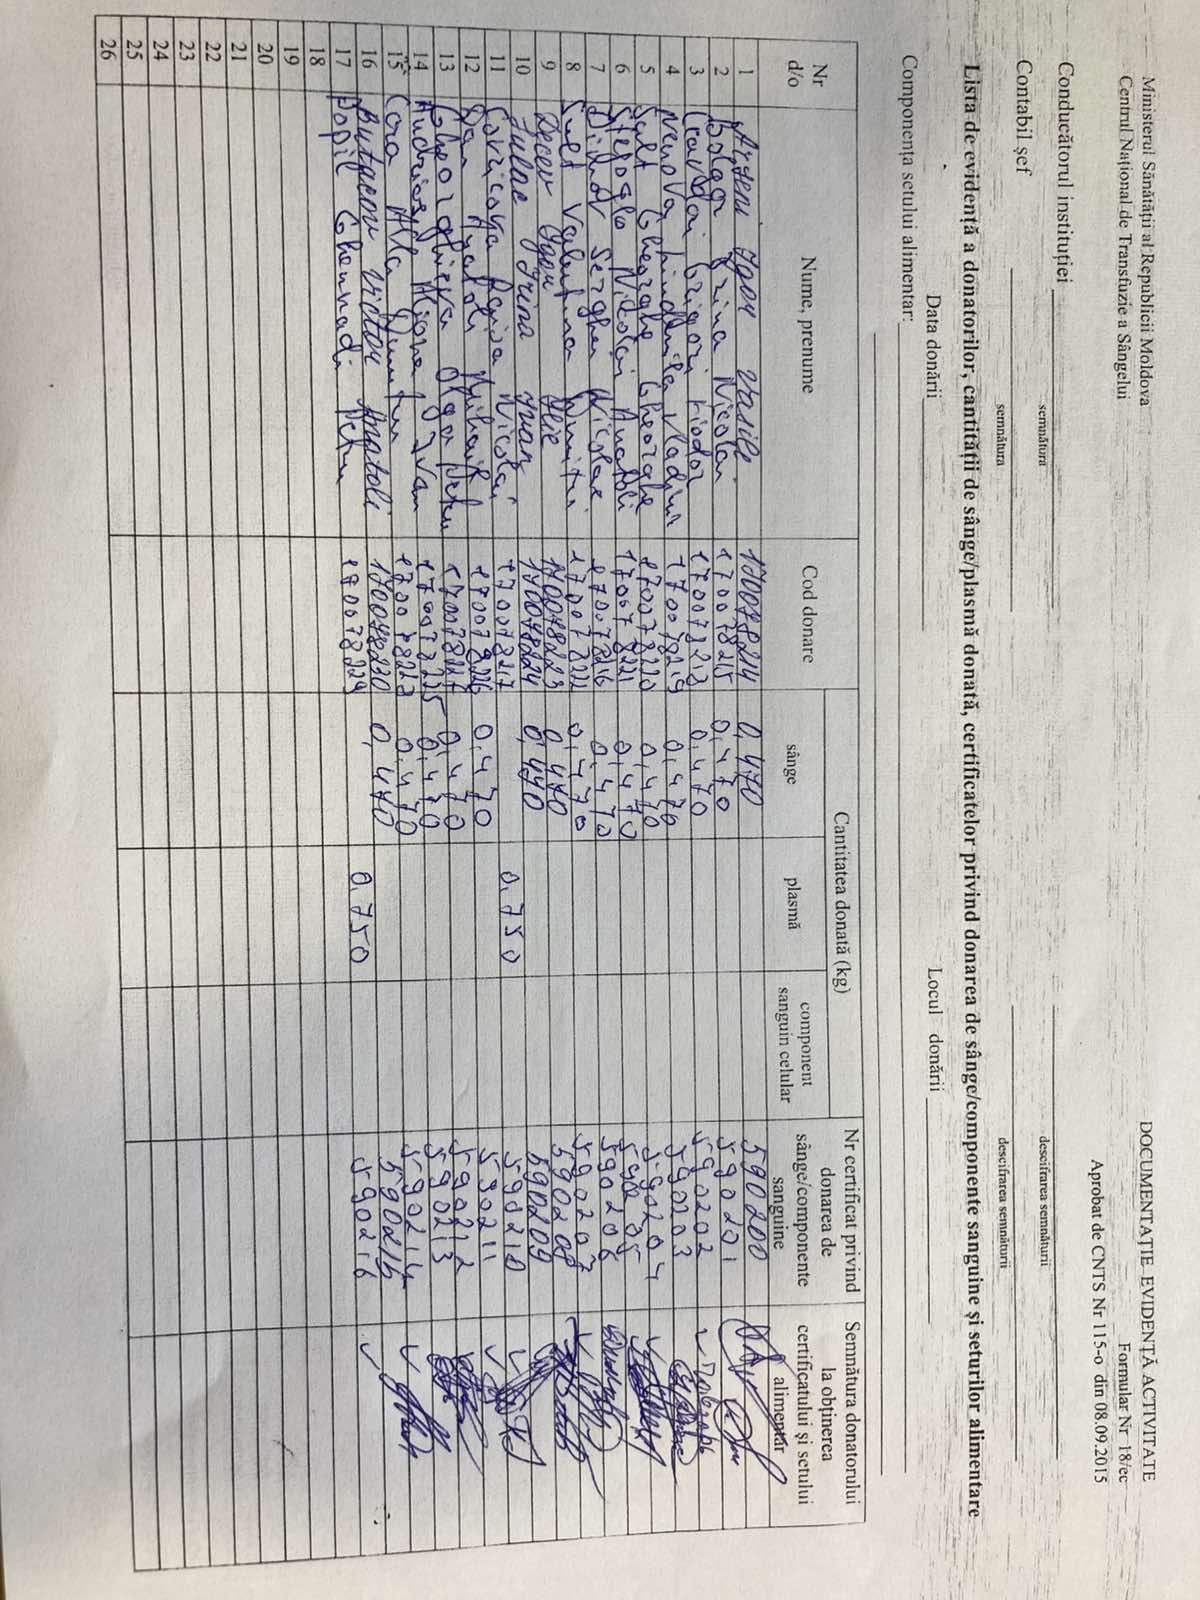 Ministerul Sănătății al Republicii Moldova
Centrul Național de Transfuzie a Sângelui
DOCUMENTAȚIE EVIDENȚĂ ACTIVITATE
Formular Nr 18/ec
Aprobat de CNTS Nr 115-o din 08.09.2015
Conducătorul instituției
semnătura descifrarea semnăturii
Contabil șef
semnătura descifrarea semnăturii
Lista de evidență a donatorilor, cantității de sânge/plasmă donată, certificatelor privind donarea de sânge/componente sanguine și seturilor alimentare
Data donării Locul donării
Componența setului alimentar:
Nr d/o Nume, prenume Cod donare Cantitatea donată (kg) Nr certificat privind donarea de sânge/componente sanguine Semnătura donatorului la obținerea certificatului și setului alimentar
sânge plasmă component sanguin celular
1 Igor Vasile 170078214 0,470 590200
2 Irina Nicolai 170078215 0,470 590201
3 Grigori Fiodor 170078218 0,470 590202
4 Nenova 170078219 0,470 590203
5 Sult Gheorghe Gheorghe 170078220 0,470 590204
6 Stepoglo Nicolai Anatoli 170078221 0,470
7 Serghei Nicolae 170078216 0,470 590206
8 Sult Valentina Dumitru 170078222 0,470 590207
9 Decev Igor Ilie 170078223 0,470 590208
10 Irina Ivan 170078224 0,470 590209
11 Nicolai 170078217 0,750 590210
12 Dan Anatoli Mihail 170078226 0,470 590211
13 Gheorghieva Olga Petru 0,470 590212
14 Ivan 170078225 0,470 590213
15 Cara Alla Dumitru 0,470 590214
16 Butacov Victor Anatoli 0,470
17 Popil Ghennadi Petru 170078229 0,750 590216
18
19
20
21
22
23
24
25
26